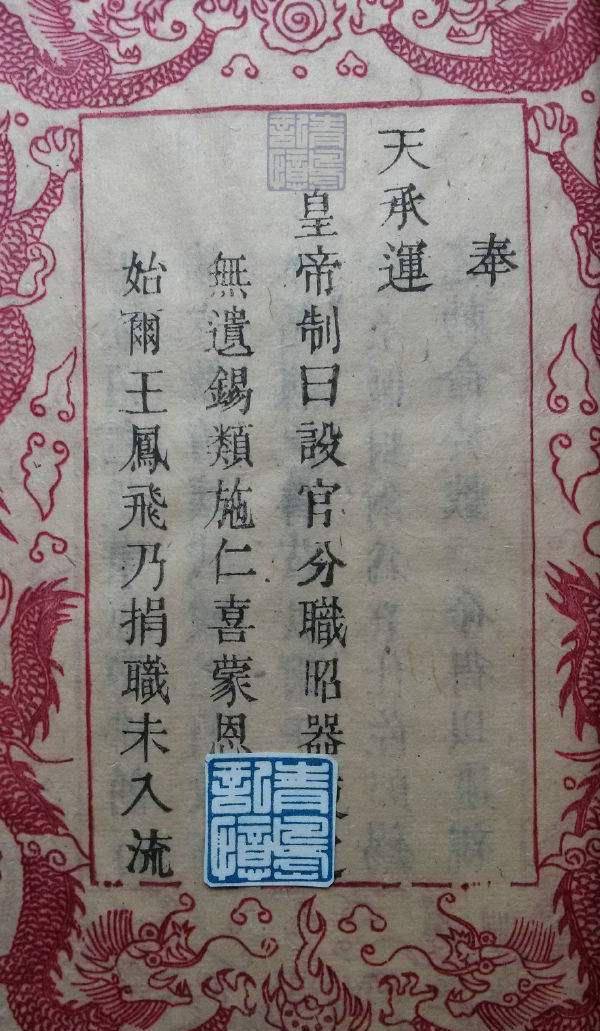 奉
天承運
皇帝制曰設官分職昭器
無遺錫類施仁喜蒙恩
始爾王鳳飛乃捐職未入流